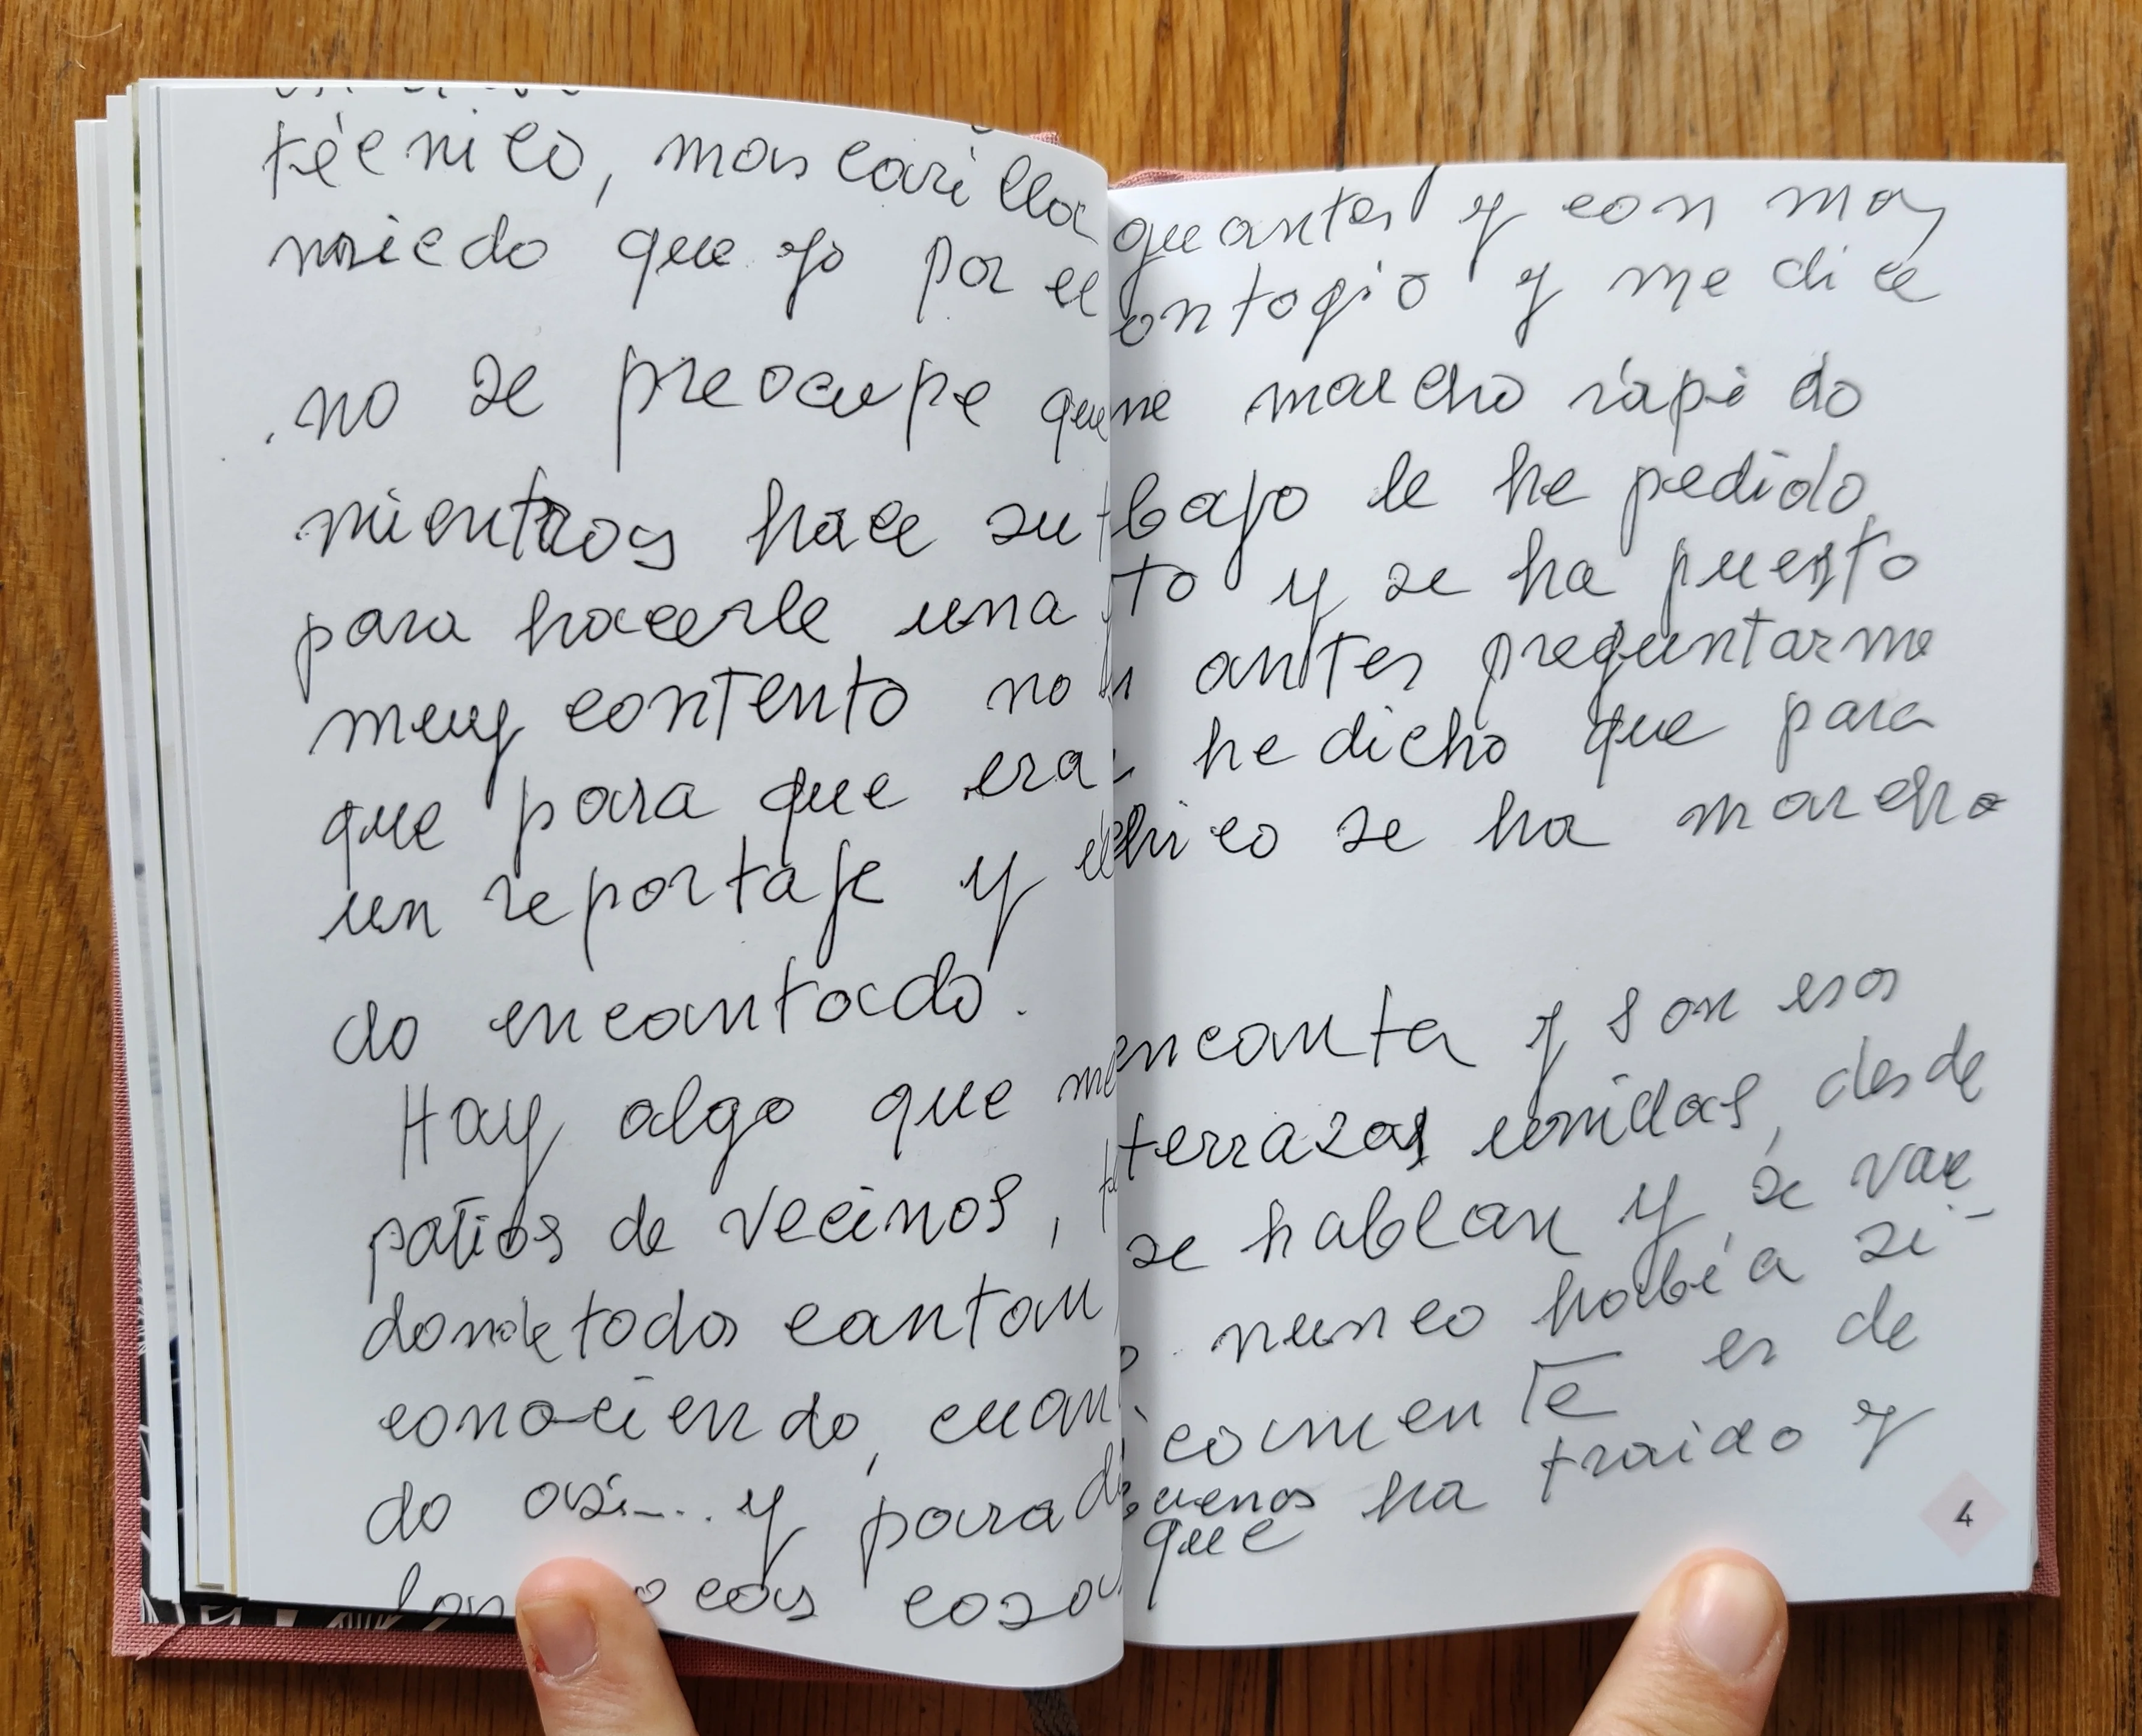 técnico, mascarilla guantes y con mas
miedo que yo por el contagio y me dice
no se preocupe que me marcho rápido
mientras hace su trabajo le he pedido
para hacerle una foto y se ha puesto
muy contento no sin antes preguntarme
que para que era he dicho que para
un reportaje y el chico se ha marcha
do encantado.
Hay algo que me encanta y son esos
patios de vecinos, terrazas unidas, desde
donde todos cantan se hablan y se van
conociendo, cuando nunca había si-
do así... y para es de
cosas buenas que ha traido y
4